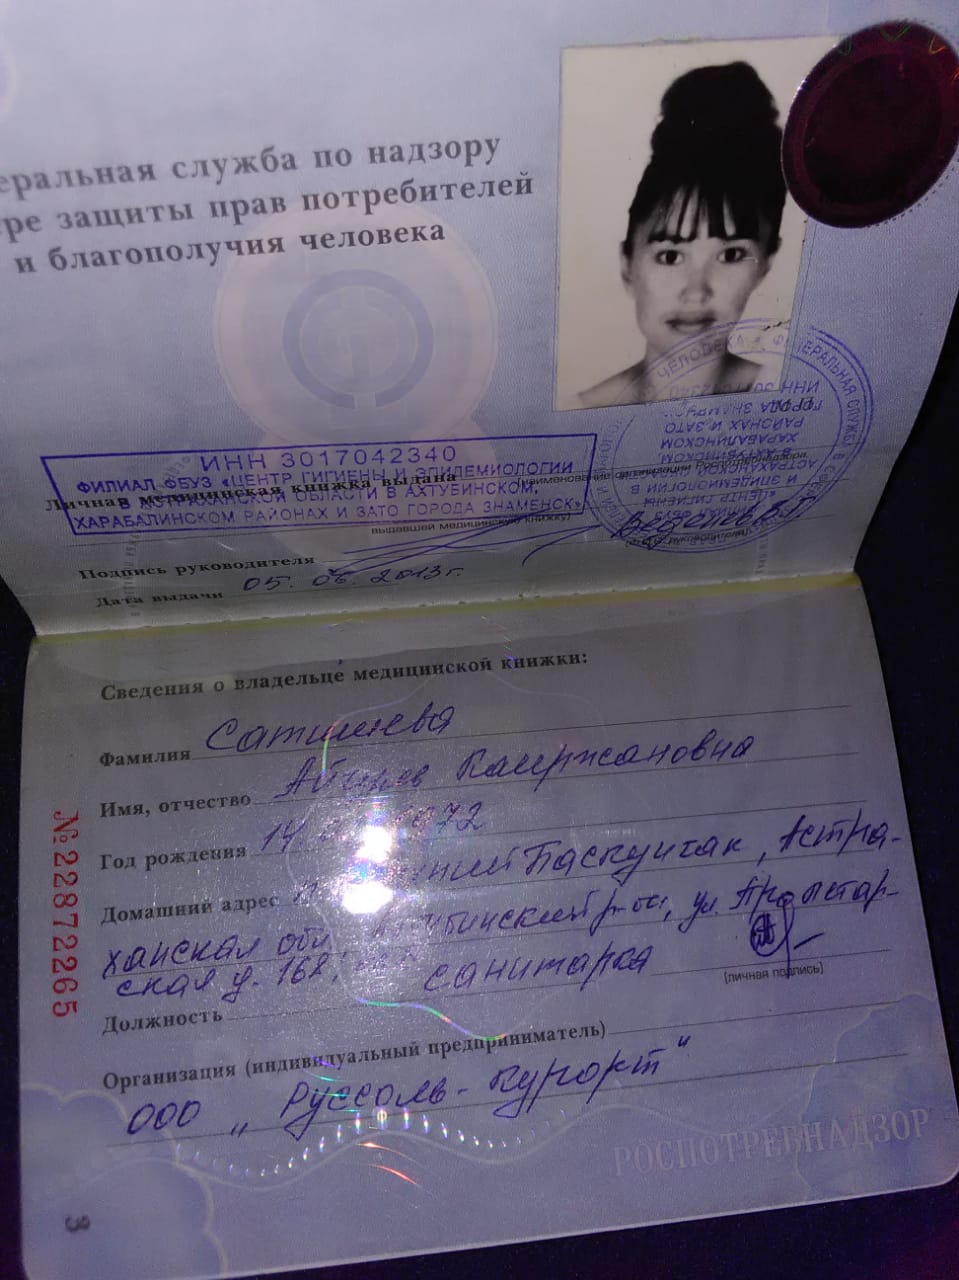 еральная служба по надзору
ере защиты прав потребителей
и благополучия человека
ИНН 3017042340
ФИЛИАЛ ФБУЗ «ЦЕНТР ГИГИЕНЫ И ЭПИДЕМИОЛОГИИ
Личная медицинская книжка выдана
(наименование организации Роспотребнадзора,
В АСТРАХАНСКОЙ ОБЛАСТИ В АХТУБИНСКОМ,
ХАРАБАЛИНСКОМ РАЙОНАХ И ЗАТО ГОРОДА ЗНАМЕНСК»
выдавшей медицинскую книжку)
Подпись руководителя
Дата выдачи 05. 06. 2013г.
Сведения о владельце медицинской книжки:
Фамилия
Имя, отчество Каиржановна
Год рождения 14 1972
Домашний адрес Баскунчак, Астра-
ханская ул. Пролетар-
ская д. 168,
(личная подпись)
Должность санитарка
Организация (индивидуальный предприниматель)
ООО „Руссоль-курорт"
РОСПОТРЕБНАДЗОР
№ 22872265
3